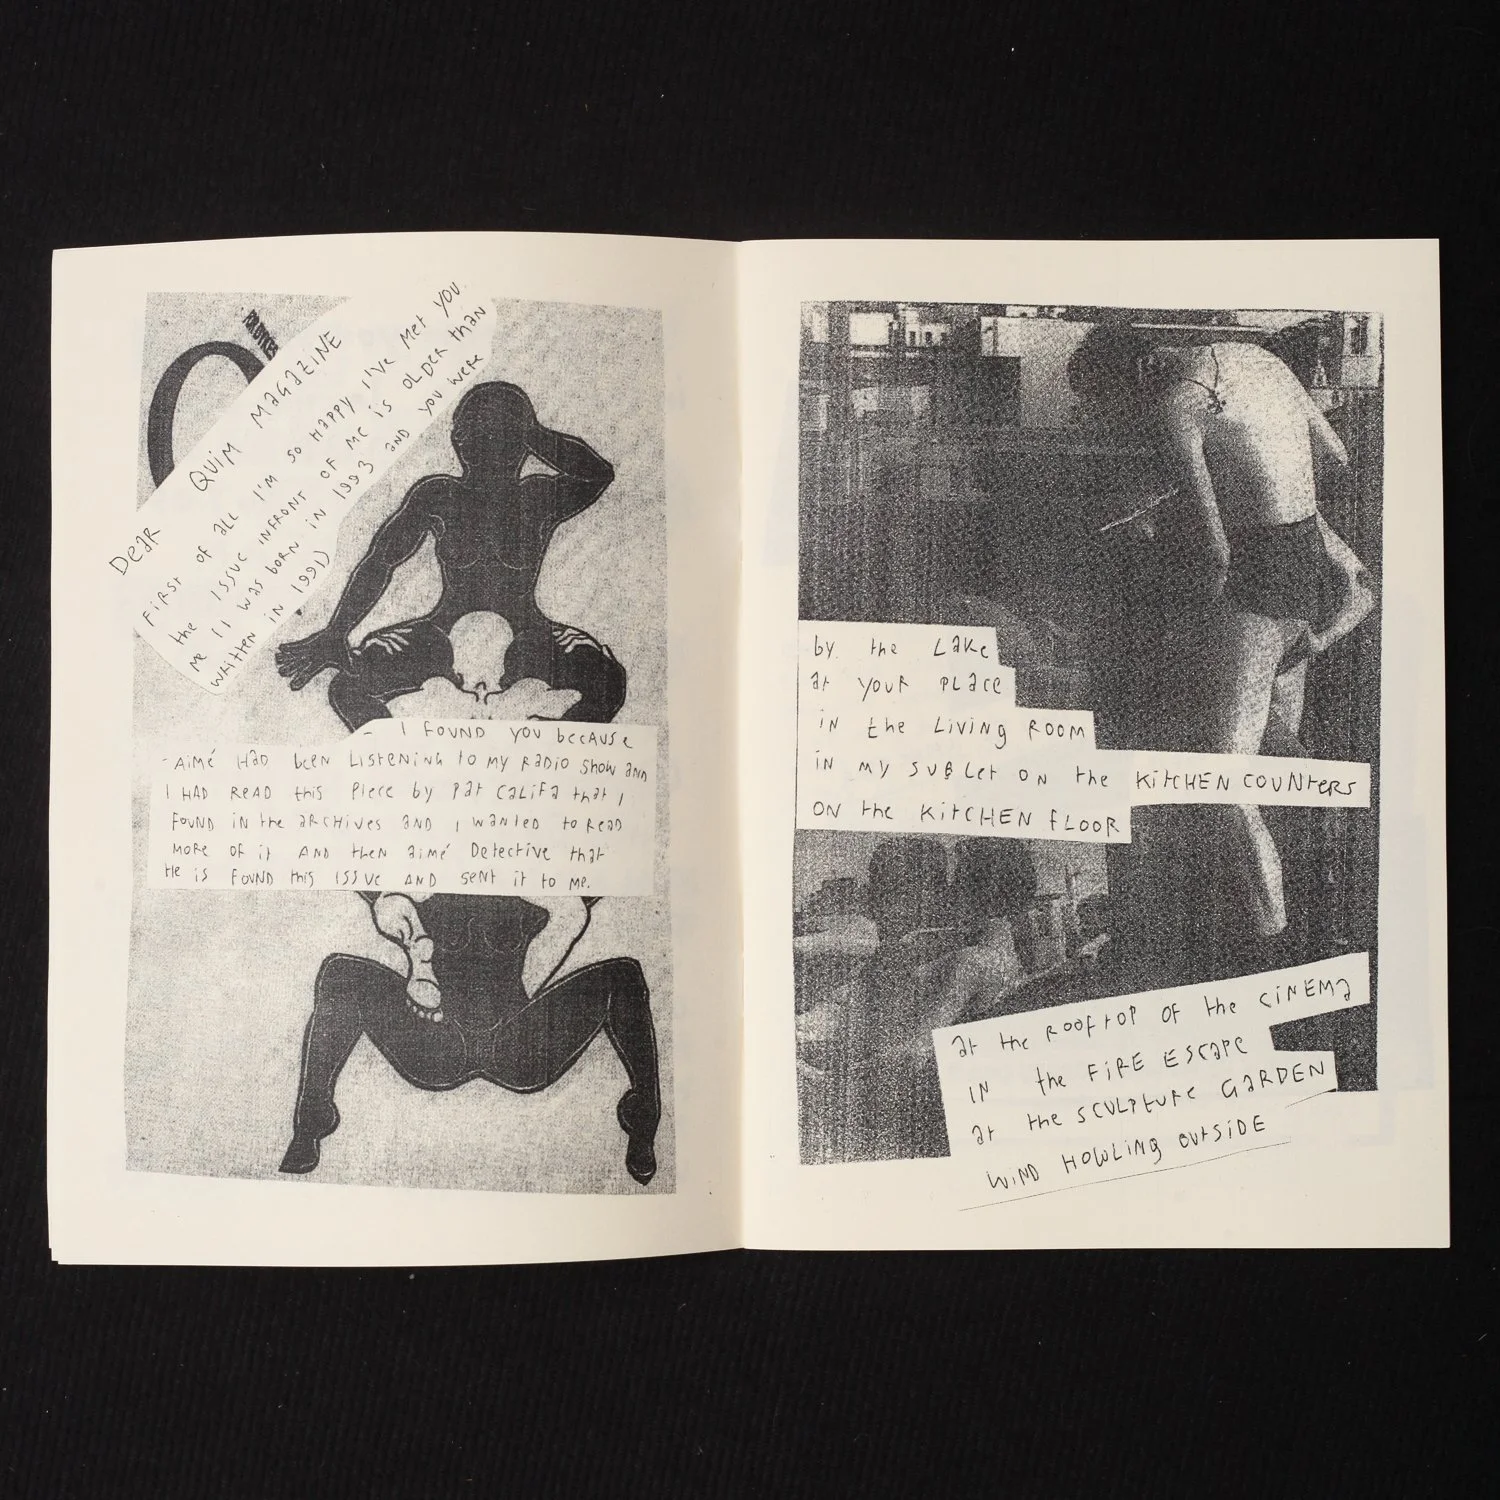 Dear QUiM MAGAZiNE
FiRST OF aLL I'M SO HAPPY I'VE MET YOU.
the ISSUE INFRONT OF ME iS OLDER than
ME (I was born iN 1993 and you were
WRitten iN 1991)
- I FOUND YOU bECAUSE
- AiMé HaD bEEN LiSTENiNG to MY RADiO SHOW and
I HAD READ this PiECE by Pat CaLiFa that I
FOUND iN the aRCHiVES AND I WANTED to READ
MORE OF it AND then aiMé DetECtive that
He is FOUND this ISSUE AND SENT it to ME.
by the LaKe
at YOUR PLace
iN the LiviNg ROOM
iN MY SUBLet ON the KitCHEN COUNtERS
ON the KitCHEN FLOOR
at the ROOFtOP OF the CiNEMa
IN the FiRE EScaPE
at the SCULPtURE GaRDEN
WiND HOWLiNg OUtSiDE